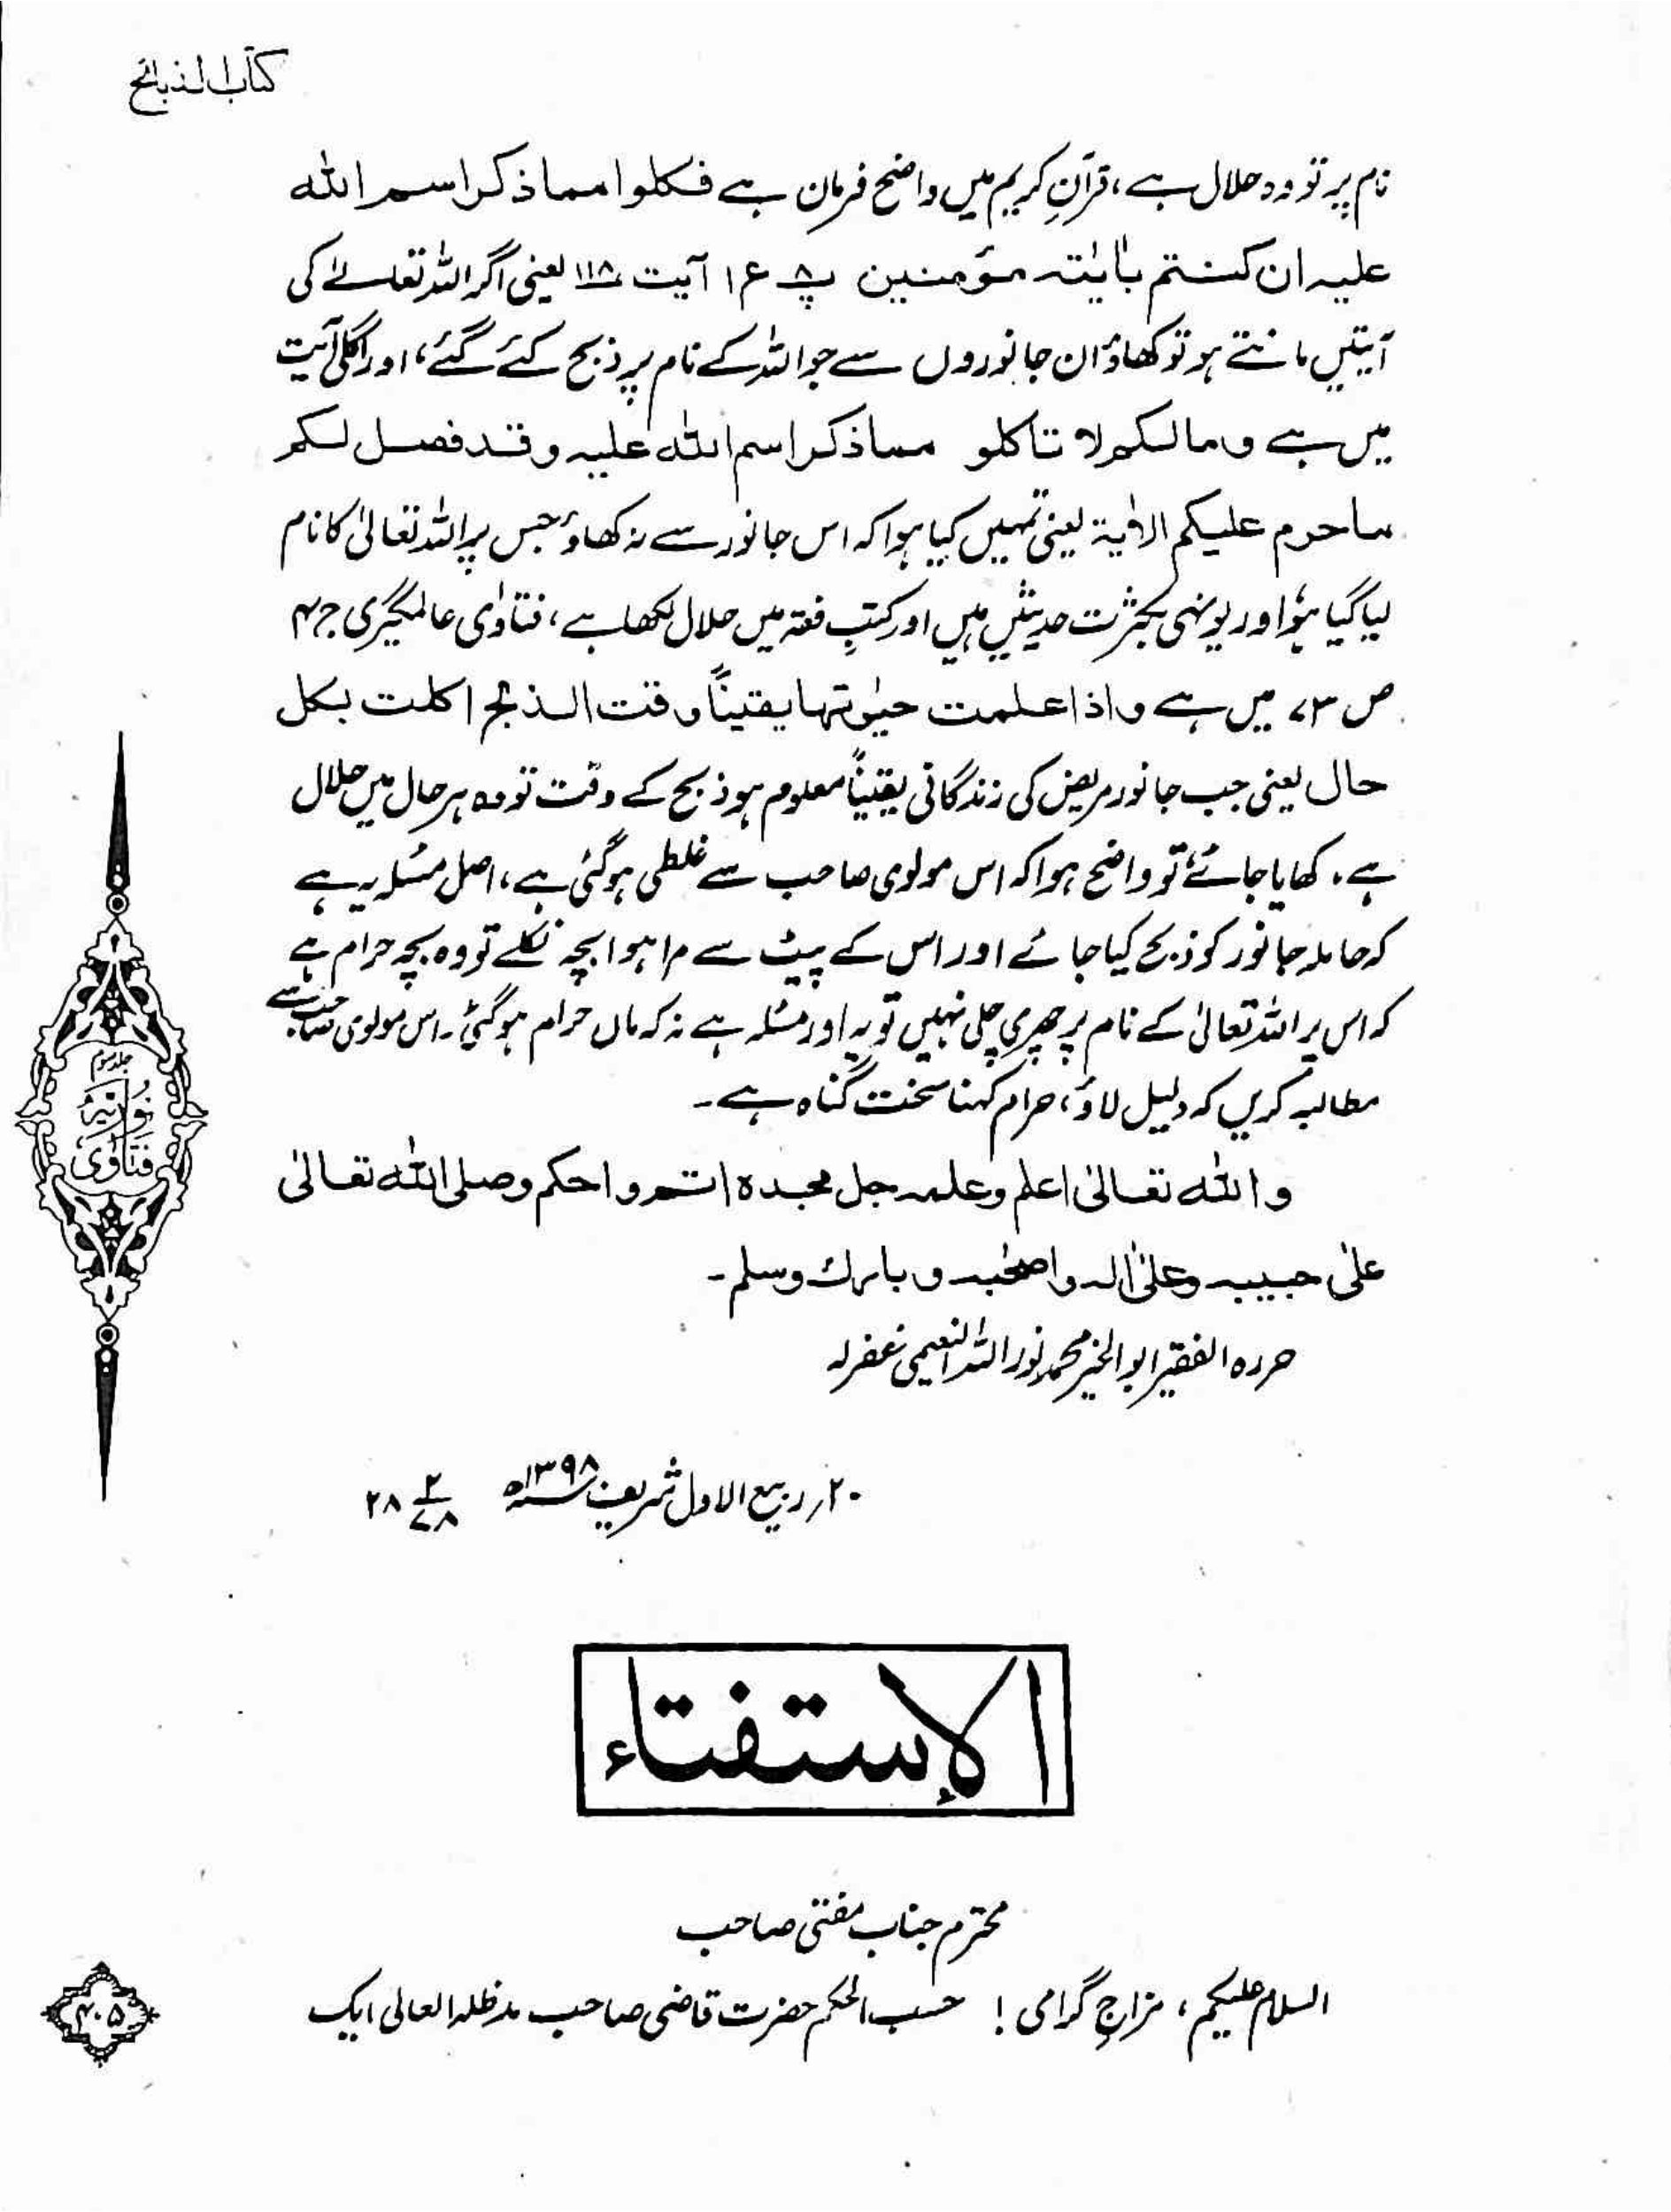 کتاب الذبائح
نام پر تو وہ حلال ہے، قرآنِ کریم میں واضح فرمان ہے فکلوا مما ذکر اسم اللہ
علیہ ان کنتم باٰیٰتہ مؤمنین پ ۸ ع ۱ آیت ۱۱۸ یعنی اگر اللہ تعالےٰ کی
آیتیں مانتے ہو تو کھاؤ ان جانوروں سے جو اللہ کے نام پر ذبح کئے گئے، اور اگلی آیت
میں ہے وما لکم لا تاکلو مماذکر اسم اللہ علیہ وقد فصل لکم
ماحرم علیکم الاٰیۃ یعنی تمہیں کیا ہوا کہ اس جانور سے نہ کھاؤ جس پر اللہ تعالیٰ کا نام
لیا گیا ہو اور یونہی بکثرت حدیثیں ہیں اور کتبِ فقہ میں حلال لکھا ہے، فتاوٰی عالمگیری ج ۴
ص ۷۳ میں ہے واذا علمت حیٰوتہا یقیناً وقت الذبح اکلت بکل
حال یعنی جب جانور مریض کی زندگانی یقیناً معلوم ہو ذبح کے وقت تو وہ ہر حال میں حلال
ہے، کھایا جائے تو واضح ہوا کہ اس مولوی صاحب سے غلطی ہوگئی ہے، اصل مسئلہ یہ ہے
کہ حاملہ جانور کو ذبح کیا جائے اور اس کے پیٹ سے مرا ہوا بچہ نکلے تو وہ بچہ حرام ہے
کہ اس پر اللہ تعالیٰ کے نام پر چھری چلی نہیں تو یہ اور مسئلہ ہے نہ کہ ماں حرام ہوگئی۔ اس مولوی صاحب سے
مطالبہ کریں کہ دلیل لاؤ، حرام کہنا سخت گناہ ہے۔
واللہ تعالیٰ اعلم وعلمہ جل مجدہ اتم واحکم وصلی اللہ تعالیٰ
علیٰ حبیبہ وعلیٰ اٰلہ واصحٰبہ وبارک وسلم۔
حررہ الفقیر ابوالخیر محمد نور اللہ النعیمی غفرلہ
۲۰ ربیع الاول شریف ۱۳۹۸ھ ۲۸ ۲ ۷۸
الاستفتاء
محترم جناب مفتی صاحب
السلام علیکم، مزاجِ گرامی! حسب الحکم حضرت قاضی صاحب مدظلہ العالی ایک
فتاوٰی نوریہ
۴۰۵